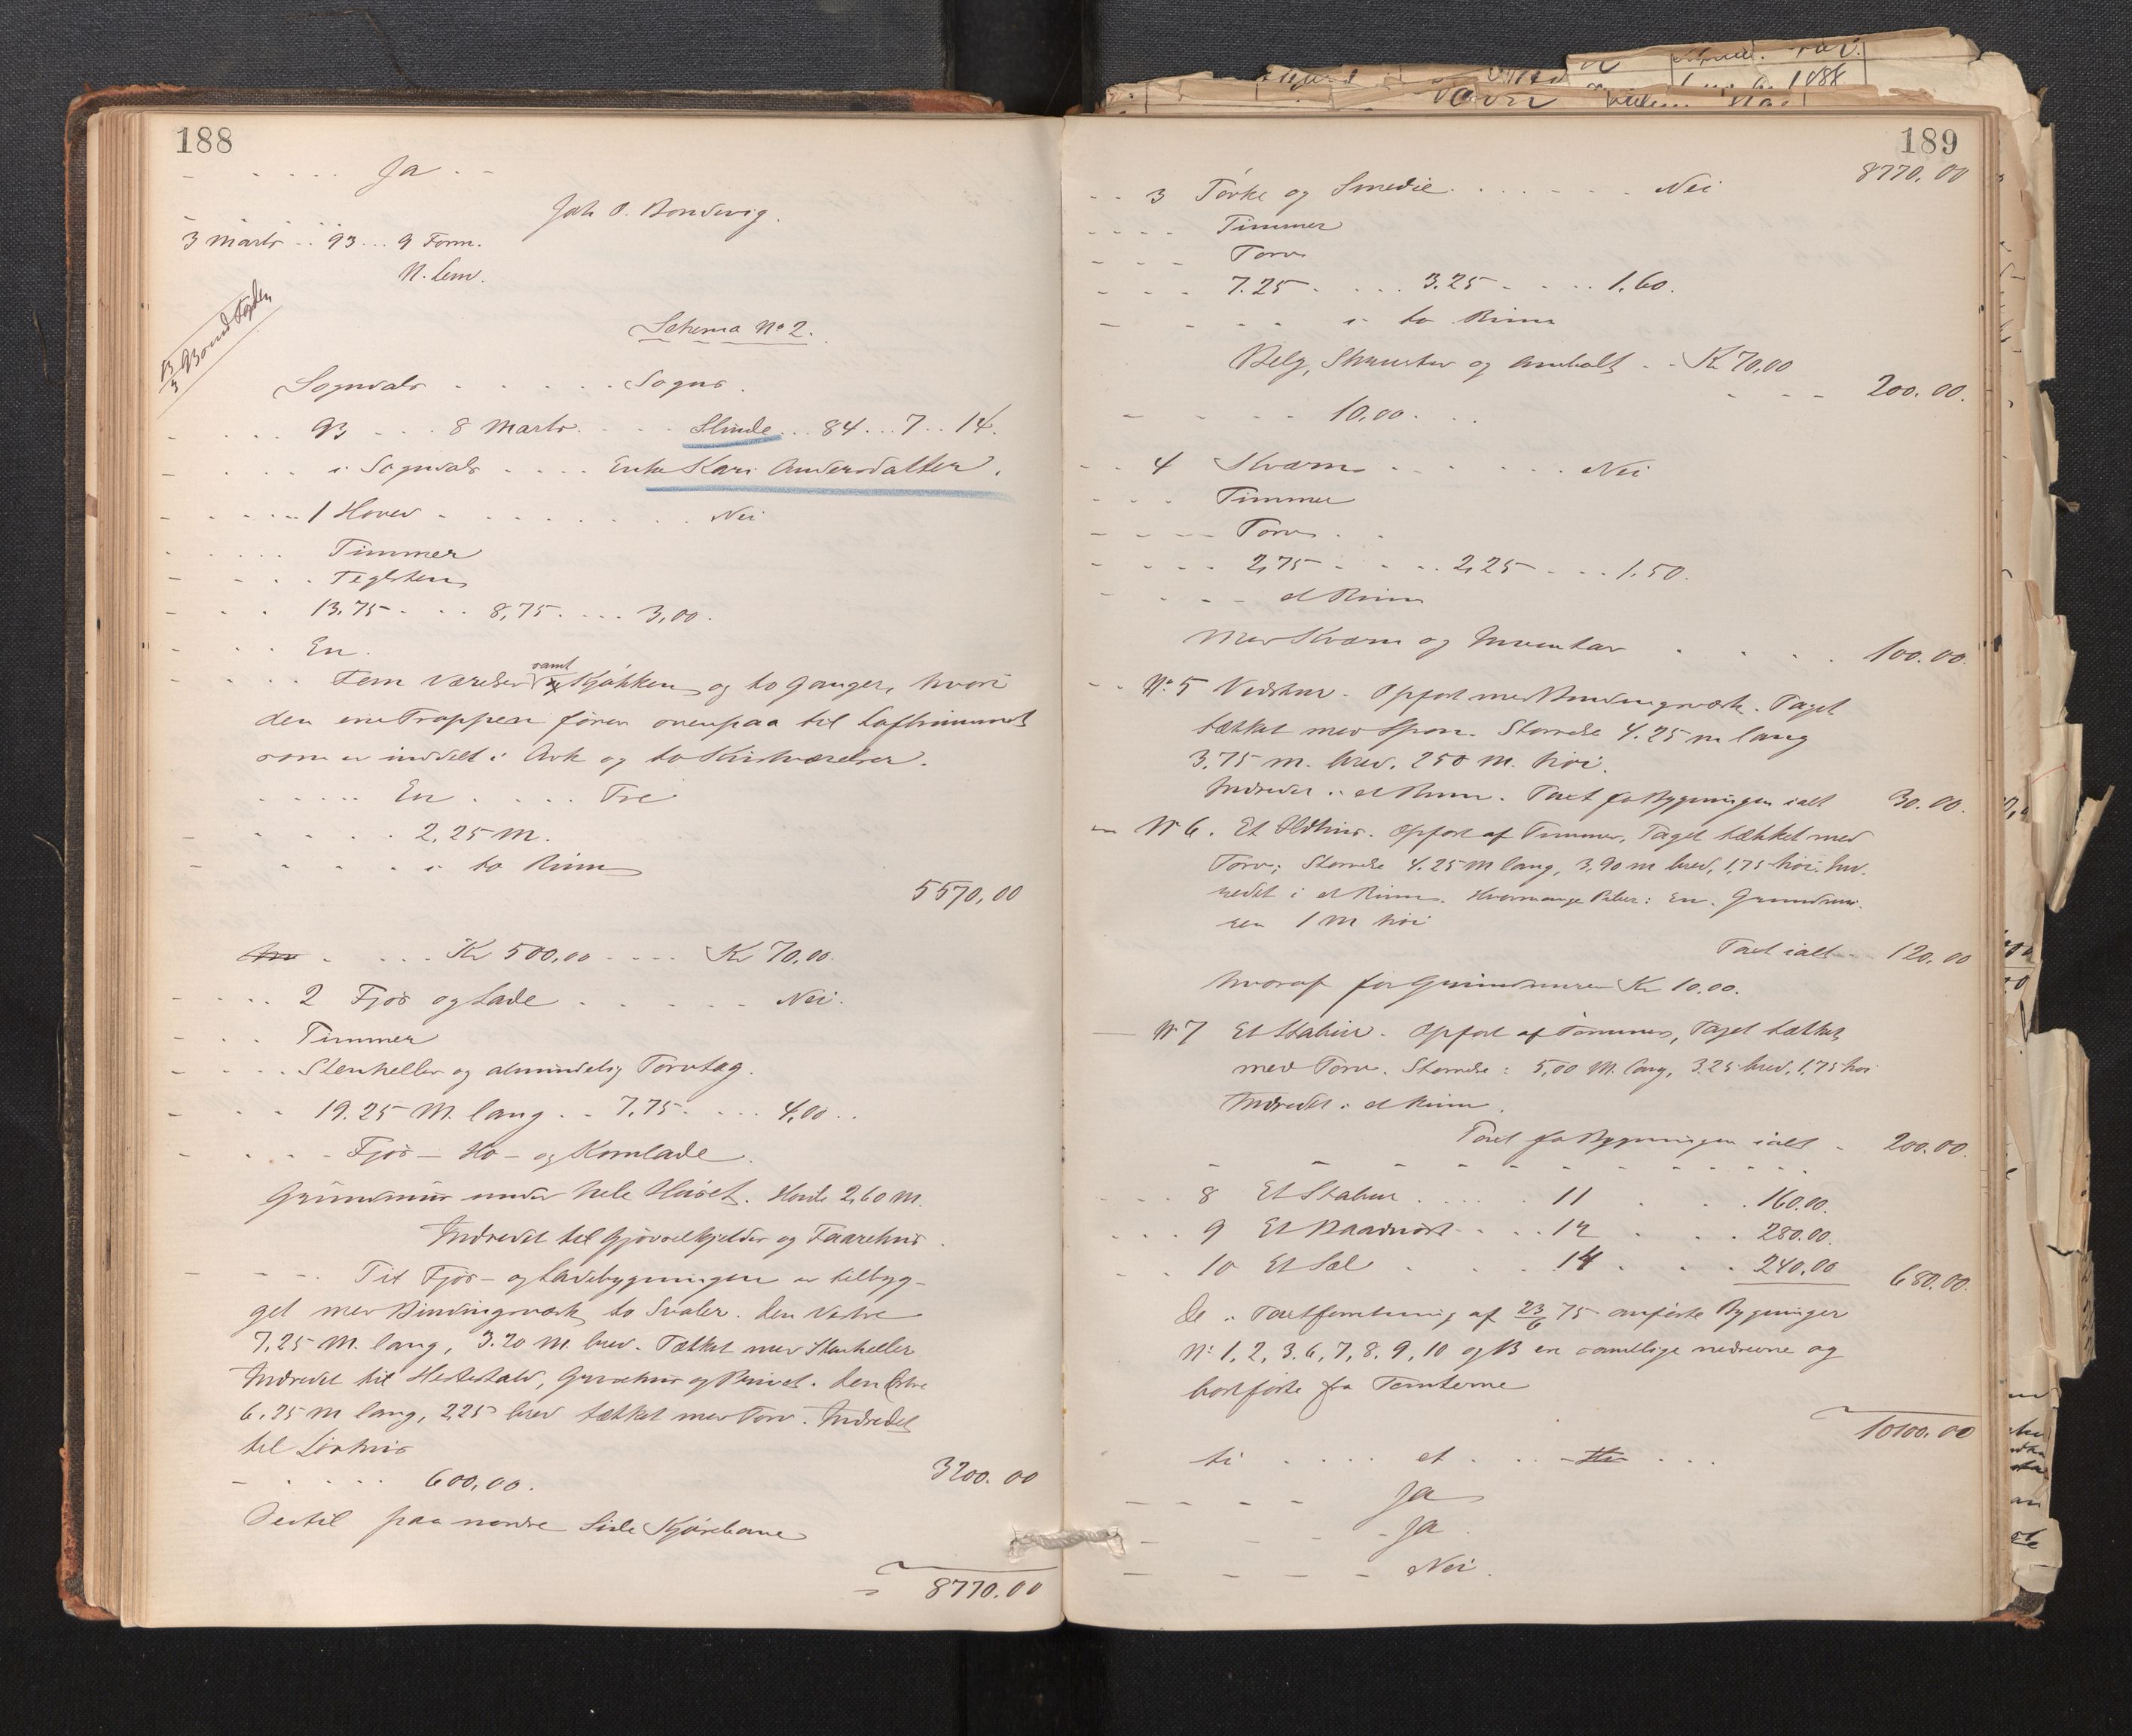 188
- . . . . Ja . -
Joh O. Bondevig.
3 Marts .. 93 ... 9 Form.
N. Lem.
13/3 Bondefogden
Schema No 2.
Sogndals . . . . . . Sogns .
. . . 93 . . . 8 Marts . . . Slinde . . 84 . . . 7 . . 14.
. . . i Sogndals . . . . Enke Kari Andersdatter .
. . . . 1 Hoved . . . . . . . Nei
. . . . Timmer
- . . . Teglsten
- . . 13.75 . . . 8,75 . . . . 3,00 .
- . . En .
. . . Fem Værelser samt Kjøkken og to Gange, hvori
den ene Trappen fører ovenpaa til Loftrummet
som er inddelt i Ark og to Kvistværelser .
. . . . . En . . . . . Tre
- . . . . 2,25 M.
- . . . . i to Rum
5570,00
. . . . Kr 500,00 . . . . Kr 70,00.
- . . . 2 Fjøs og Lade . . . . . . Nei.
- . . Timmer
- . . . Stenheller og almindelig Torvtag.
- . . 19.25 M. lang . . 7,75 . . . . 4,00 . .
- . . . Fjøs - Ho - og Kornlade .
Grundmur under hele Huset. Høide 2,60 M.
Indredet til Gjødselkjelder og Faarehus .
- - - . Til Fjøs - og Ladebygningen er tilbyg-
get med Bindingsværk to Svaler. Den Vestre
7,25 M. lang, 3.20 M. bred. Tækket med Stenheller
Indredet til Hestestald, Gruehus og Privet. Den Østre
6,25 M lang, 2,25 bred tækket med Torv. Indredet
til Løvhus
- . . . . . 600,00.
3200.00
Dertil paa nordre Side Kjørebane
8770.00
189
8770.00
- - 3 Tørke og Smedie . . . . . . Nei
. . . . Timmer
- - - Torv
- - - 7.25 . . . . 3.25 . . . . 1,60.
- - - - i to Rum
Belg, Skruestik og Ambolt . . Kr 70,00
200.00.
- - - - 10,00 . . .
- - 4 Kværn . . . . . . Nei
- - - Timmer
- - - Torv . .
- - - - 2,75 . . . . 2,25 . . . 1.50.
- - - et Rum
Med Kværn og Inventar . . . . 100.00.
- - No 5 Vedskur . Opført med Bindingsværk. Taget
tækket med Spon. Størrelse 4.25 m lang
3,75 m. bred, 2,50 m. høi.
Indredet i et Rum. Taxt for Bygningen ialt 30.00.
No 6. Et Ildhus. Opført af Timmer, Taget tækket med
Torv; Størrelse 4.25 M lang, 3,90 m bred, 1,75 høi. Ind.
redet i et Rum. Hvormange Piber: En. Grundmu-
ren 1 M høi
Taxt ialt . . 120.00
hvoraf for Grundmuren Kr 10.00.
No 7 Et Stabur. Opført af Tømmer, Taget tækket
med Torv. Størrelse: 5,00 M. lang, 3.25 bred, 1,75 høi
Indredet i et Rum .
Taxt for Bygningen ialt . 200.00.
- - - 8 Et Stabur . . . . . 11 . . . 160.00.
- - - 9 Et Baadnøst . . . . 12 . . . 280.00.
- - - 10 Et Sæl . . . . 14 . . . 240.00 680.00.
De i Taxtforretning af 23/6 75 anførte Bygninger
No 1, 2, 3, 6, 7, 8, 9, 10 og 13 er samtlige nedrevne og
bortførte fra Tomterne
10100.00
ti . . . . . et . . . . . .
- - - - Ja
- - - - Ja .
- - - - Nei .